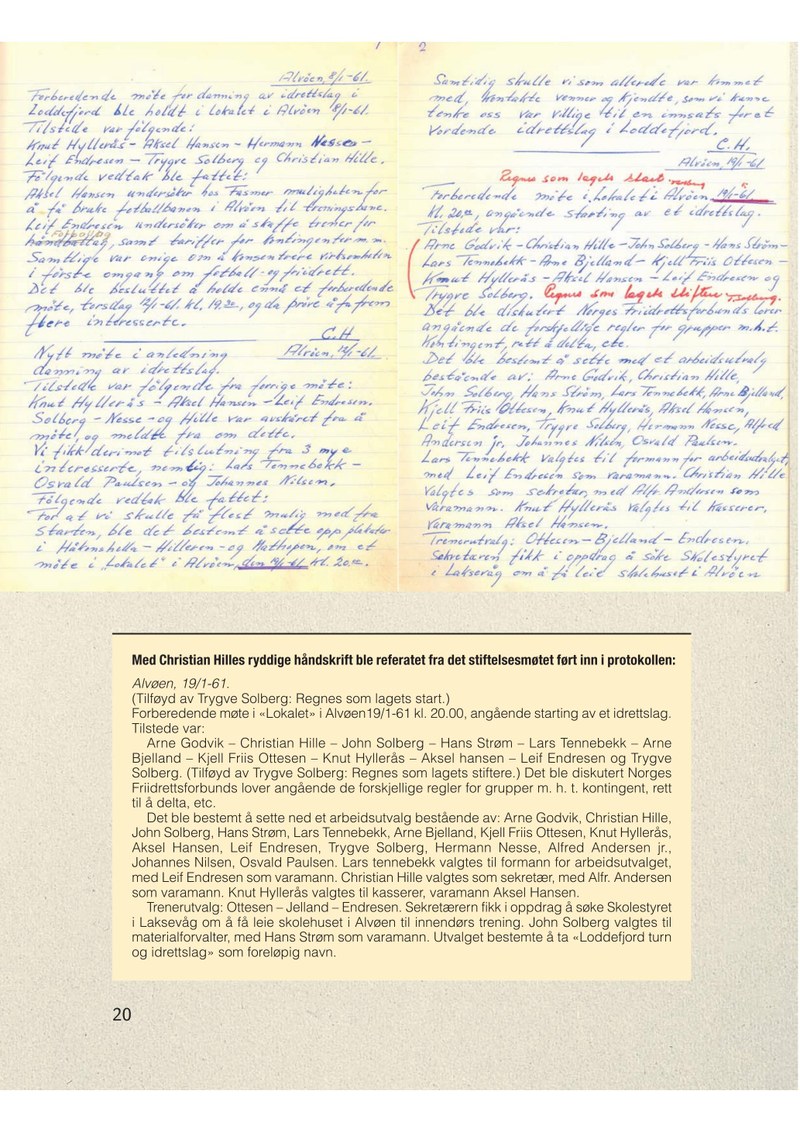 1
Alvöen, 8/1-61.
Forberedende möte for danning av idrettslag i
Loddefjord ble holdt i Lokalet i Alvöen 8/1-61.
Tilstede var följende:
Knut Hyllerås - Aksel Hansen - Hermann Nesse -
Leif Endresen - Trygve Solberg og Christian Hille.
Fölgende vedtak ble fattet:
Aksel Hansen undersöker hos Fasmer muligheten for
å få bruke fotballbanen i Alvöen til treningsbane.
Leif Endresen undersöker om å skaffe trener for
Fotball og
håndballag, samt tariffer for kontingenter m.m.
Samtlige var enige om å konsentrere virksomheten
i förste omgang om fotball- og friidrett.
Det ble besluttet å holde ennå et forberedende
möte, torsdag 12/1-61. kl. 19.30, og da pröve å få frem
flere interesserte.
C.H
Nytt möte i anledning Alvöen, 12/1-61.
danning av idrettslag.
Tilstede var fölgende fra forrige möte:
Knut Hyllerås - Aksel Hansen - Leif Endresen.
Solberg - Nesse - og Hille var avskåret fra å
möte, og meldte fra om dette.
Vi fikk derimot tilslutning fra 3 nye
interesserte, nemlig: Lars Tennebekk -
Osvald Paulsen - og Johannes Nilsen.
Fölgende vedtak ble fattet:
For at vi skulle få flest mulig med fra
starten, ble det bestemt å sette opp plakater
i Håkonshella - Hilleren - og Mathopen, om et
möte i "Lokalet" i Alvöen, den 19/1-61 kl. 20.00.
2
Samtidig skulle vi som allerede var kommet
med, kontakte venner og kjendte, som vi kunne
tenke oss var villige til en innsats for et
vordende idrettslag i Loddefjord.
C.H.
Alvöen, 19/1-61
Regnes som lagets start
Forberedende möte i "Lokalet" i Alvöen 19/1-61.
kl. 20.00, angående starting av et idrettslag.
Tilstede var:
Arne Godvik - Christian Hille - John Solberg - Hans Ström -
Lars Tennebekk - Arne Bjelland - Kjell Friis Ottesen -
Knut Hyllerås - Aksel Hansen - Leif Endresen og
Trygve Solberg. Regnes som lagets stiftere T. Solberg.
Det ble diskutert Norges Friidrettsforbunds lover
angående de forskjellige regler for grupper m.h.t.
kontingent, rett å delta, etc.
Det ble bestemt å sette med et arbeidsutvalg
bestående av: Arne Godvik, Christian Hille,
John Solberg, Hans Ström, Lars Tennebekk, Arne Bjelland,
Kjell Friis Ottesen, Knut Hyllerås, Aksel Hansen,
Leif Endresen, Trygve Solberg, Hermann Nesse, Alfred
Andersen jr, Johannes Nilsen, Osvald Paulsen.
Lars Tennebekk valgtes til formann for arbeidsutvalget,
med Leif Endresen som varamann. Christian Hille
valgtes som sekretær, med Alfr. Andersen som
varamann. Knut Hyllerås valgtes til kasserer,
varamann Aksel Hansen.
Trenerutvalg: Ottesen - Bjelland - Endresen.
Sekretæren fikk i oppdrag å söke Skolestyret
i Laksevåg om å få leie skolehuset i Alvöen
Med Christian Hilles ryddige håndskrift ble referatet fra det stiftelsesmøtet ført inn i protokollen:
Alvøen, 19/1-61.
(Tilføyd av Trygve Solberg: Regnes som lagets start.)
Forberedende møte i «Lokalet» i Alvøen19/1-61 kl. 20.00, angående starting av et idrettslag.
Tilstede var:
Arne Godvik – Christian Hille – John Solberg – Hans Strøm – Lars Tennebekk – Arne
Bjelland – Kjell Friis Ottesen – Knut Hyllerås – Aksel hansen – Leif Endresen og Trygve
Solberg. (Tilføyd av Trygve Solberg: Regnes som lagets stiftere.) Det ble diskutert Norges
Friidrettsforbunds lover angående de forskjellige regler for grupper m. h. t. kontingent, rett
til å delta, etc.
Det ble bestemt å sette ned et arbeidsutvalg bestående av: Arne Godvik, Christian Hille,
John Solberg, Hans Strøm, Lars Tennebekk, Arne Bjelland, Kjell Friis Ottesen, Knut Hyllerås,
Aksel Hansen, Leif Endresen, Trygve Solberg, Hermann Nesse, Alfred Andersen jr.,
Johannes Nilsen, Osvald Paulsen. Lars tennebekk valgtes til formann for arbeidsutvalget,
med Leif Endresen som varamann. Christian Hille valgtes som sekretær, med Alfr. Andersen
som varamann. Knut Hyllerås valgtes til kasserer, varamann Aksel Hansen.
Trenerutvalg: Ottesen – Jelland – Endresen. Sekretærern fikk i oppdrag å søke Skolestyret
i Laksevåg om å få leie skolehuset i Alvøen til innendørs trening. John Solberg valgtes til
materialforvalter, med Hans Strøm som varamann. Utvalget bestemte å ta «Loddefjord turn
og idrettslag» som foreløpig navn.
20